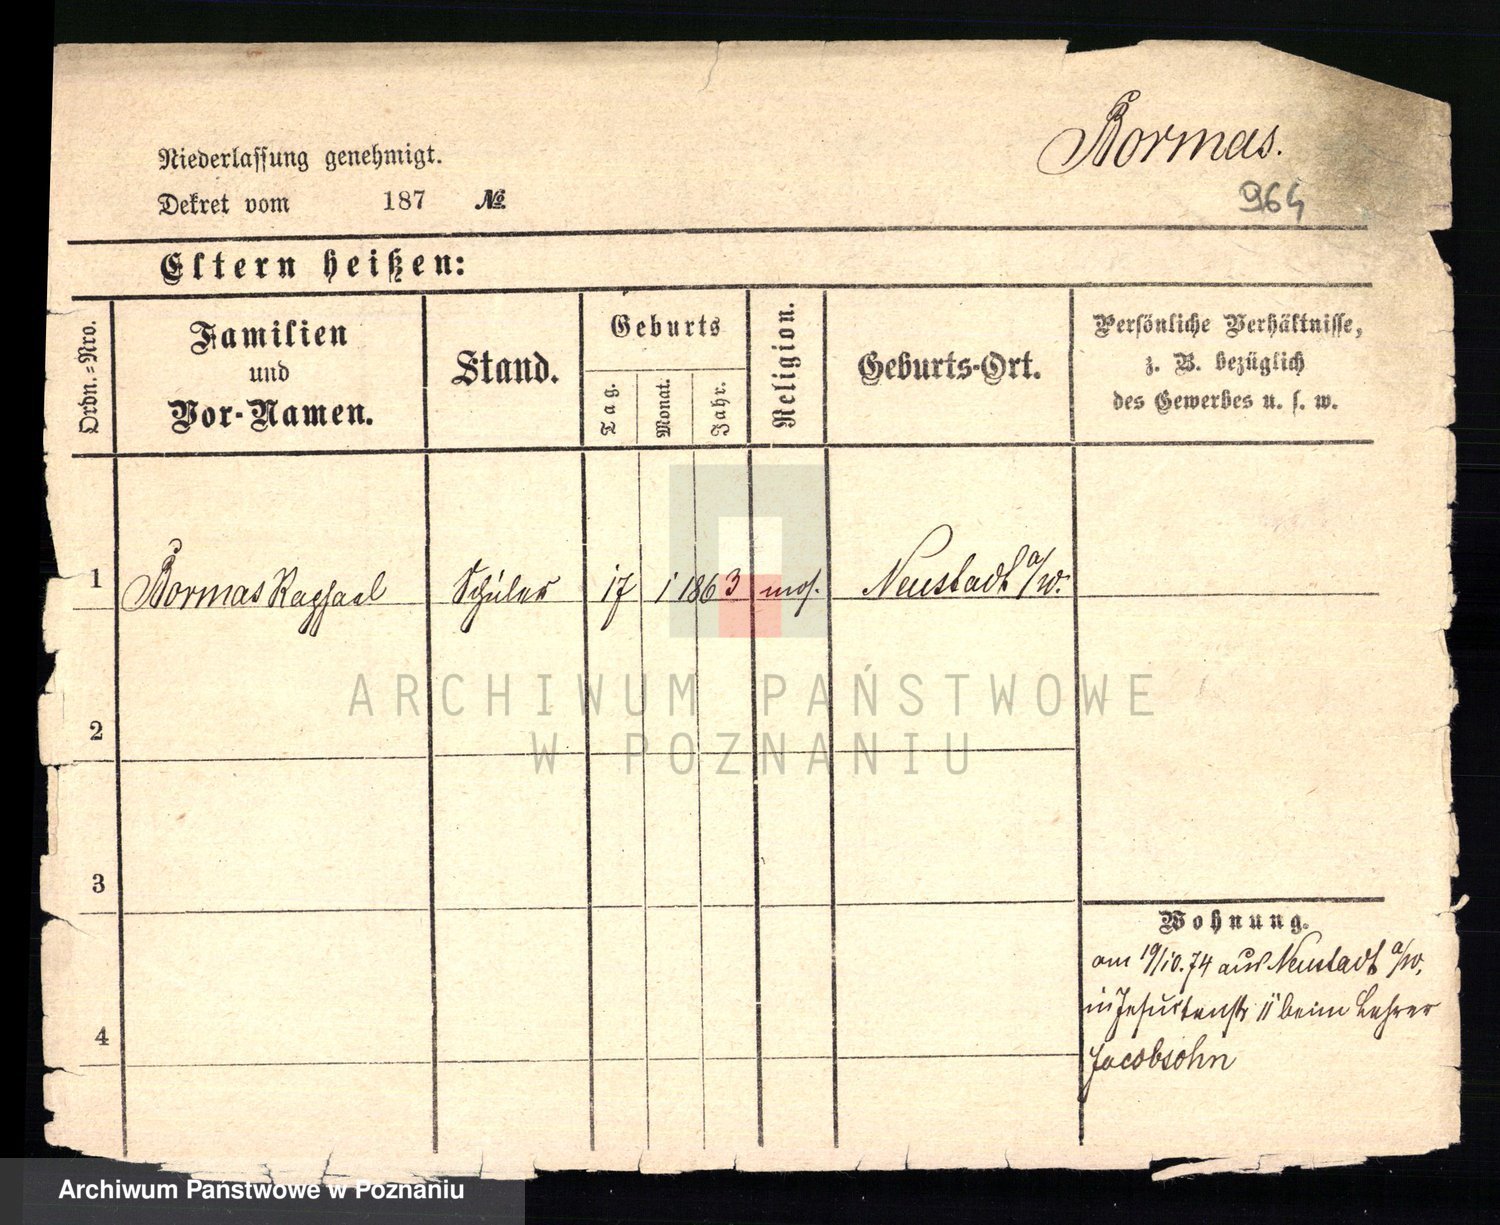 Bormas.
964
Niederlassung genehmigt.
Dekret vom 187 №
Eltern heißen:
Ordn.=Nro.
Familien
und
Vor-Namen.
Stand.
Geburts
Tag.
Monat.
Jahr.
Religion.
Geburts-Ort.
Persönliche Verhältnisse,
z. B. bezüglich
des Gewerbes u. s. w.
1 Bormas Raphael Schüler 17 1 1863 mos. Neustadt a/W.
2
3
4
Wohnung.
am 19/10.74 aus Neustadt a/W.
in Jesuitenstr 11 beim Lehrer
Jacobsohn
ARCHIWUM PAŃSTWOWE
W POZNANIU
Archiwum Państwowe w Poznaniu